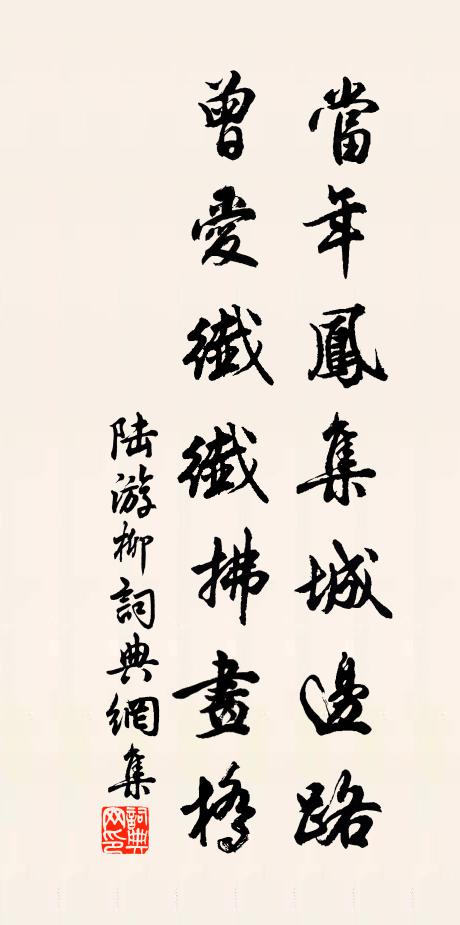 當年鳳集城邊路
曾愛纖纖拂畫橋
陸游柳詞典網集
詞典网印